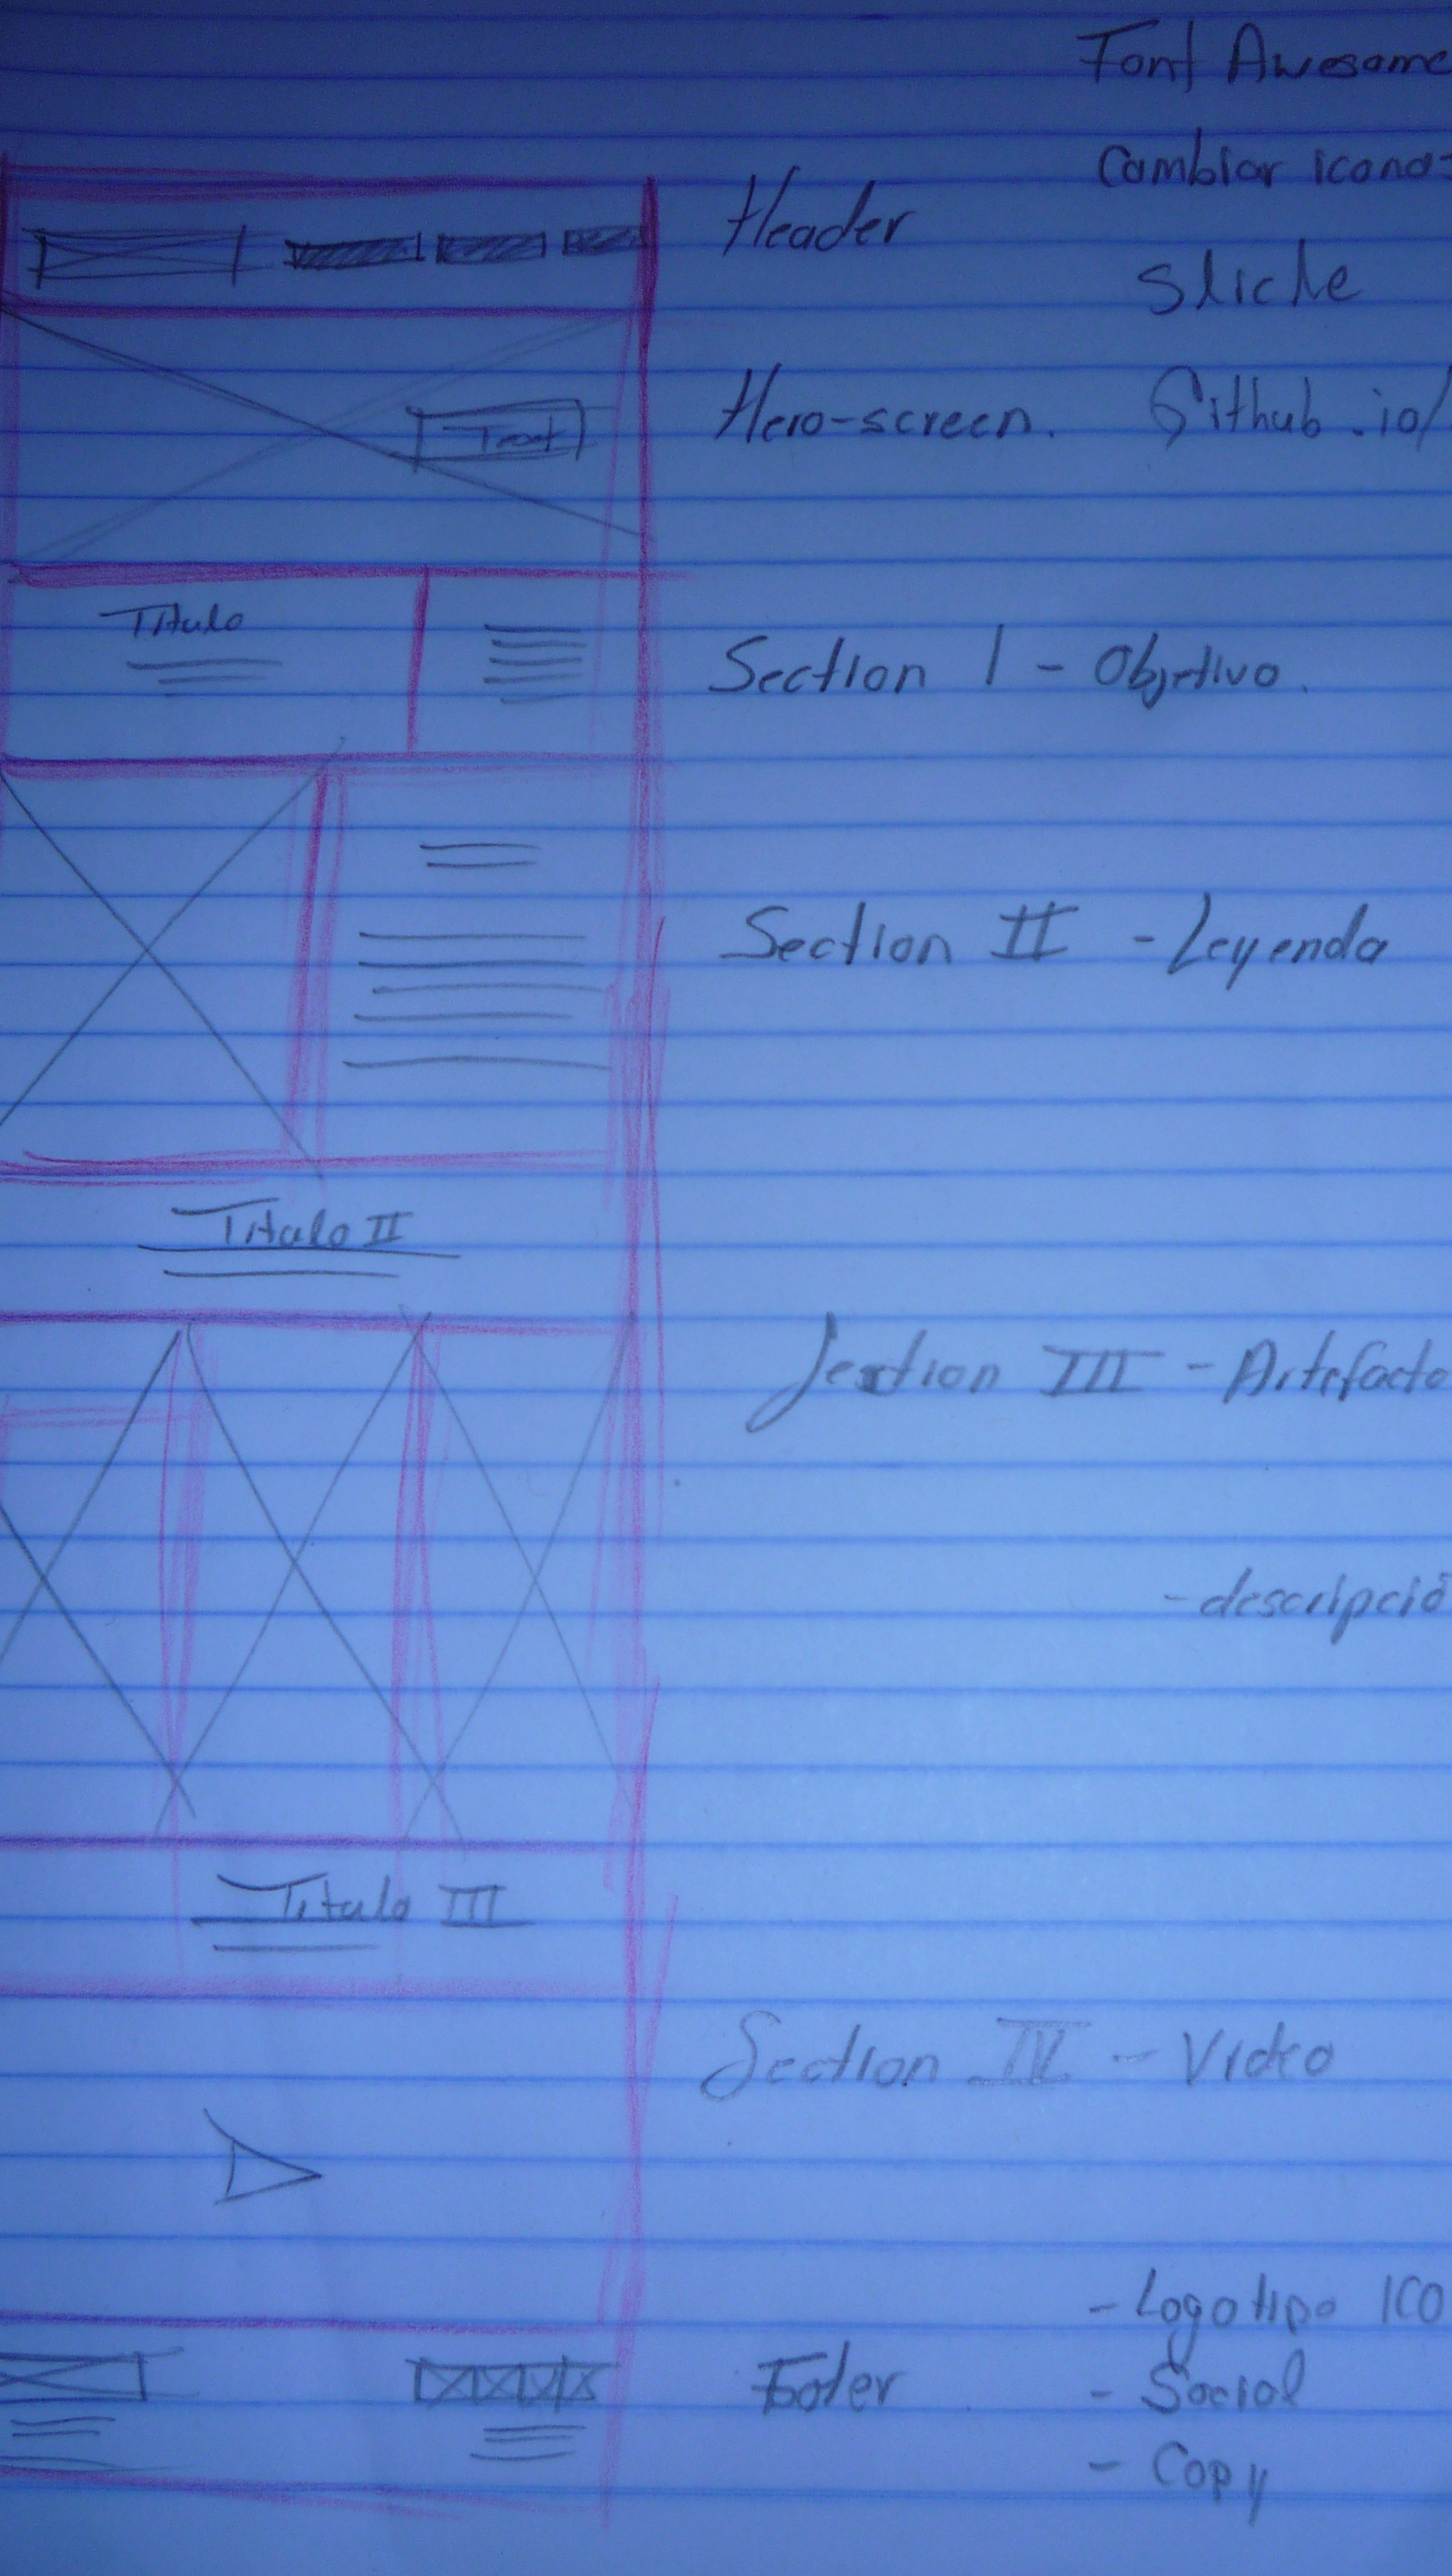 Font Awesome
Cambiar icono
Header
Slicke
Text
Hero-screen. Github.io/
Titulo
Section 1 - Objetivo.
Section II - Leyenda
Titulo II
Section III - Artefacto
- descripció
Titulo III
Section IV - Video
- Logotipo ICO
Footer
- Social
- Copy